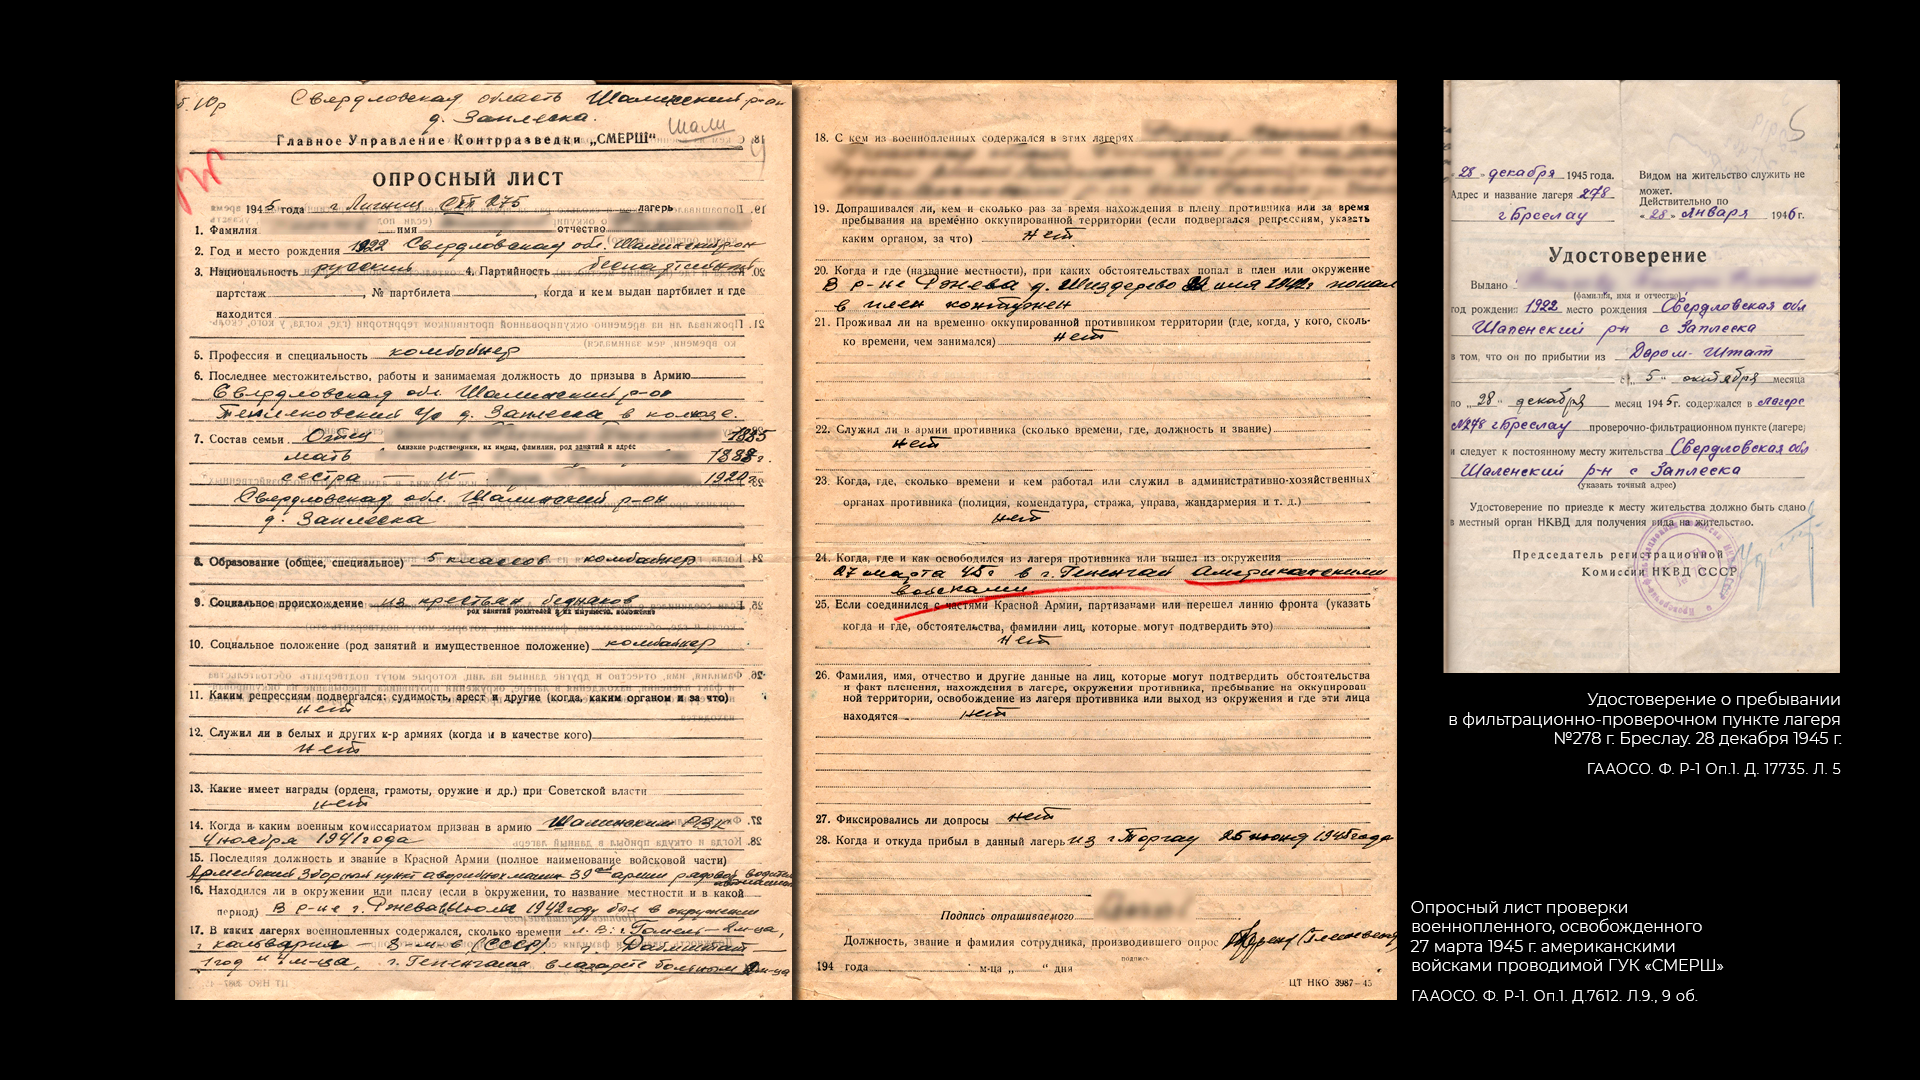 Свердловская область Шалинский р-он
д. Заплеска.
Шали
Главное Управление Контрразведки „СМЕРШ"
ОПРОСНЫЙ ЛИСТ
1945 года г. Лигниц СПП 275 лагерь
1. Фамилия имя отчество
2. Год и место рождения 1922 Свердловская обл. Шалинский р-он
3. Национальность русский 4. Партийность беспартийный
партстаж , № партбилета , когда и кем выдан партбилет и где
находится
5. Профессия и специальность комбайнер
6. Последнее местожительство, работы и занимаемая должность до призыва в Армию
Свердловская обл. Шалинский р-он
с/с д. Заплеска в колхозе.
7. Состав семьи Отец 1885
близкие родственники, их имена, фамилии, род занятий и адрес
мать 1888 г.
сестра 1920 г.
Свердловская обл. Шалинский р-он
д. Заплеска
8. Образование (общее, специальное) 5 классов комбайнер
9. Социальное происхождение из крестьян бедняков
род занятий родителей и их имуществ. положение
10. Социальное положение (род занятий и имущественное положение) комбайнер
11. Каким репрессиям подвергался: судимость, арест и другие (когда, каким органом и за что)
нет
12. Служил ли в белых и других к-р армиях (когда и в качестве кого)
нет
13. Какие имеет награды (ордена, грамоты, оружие и др.) при Советской власти
нет
14. Когда и каким военным комиссариатом призван в армию Шалинским РВК
4 ноября 1941 года
15. Последняя должность и звание в Красной Армии (полное наименование войсковой части)
Армейский Сборный пункт аварийных машин 39ой армии рядовой водитель
16. Находился ли в окружении или плену (если в окружении, то название местности и в какой
период) В р-не г. Ржева июль 1942 году был в окружении
17. В каких лагерях военнопленных содержался, сколько времени
г. кальвария – 3-м-в (СССР).
1 год и м-ца, г. Гененгаш в лазарете больным м-ца
18. С кем из военнопленных содержался в этих лагерях
19. Допрашивался ли, кем и сколько раз за время нахождения в плену противника или за время
пребывания на временно оккупированной территории (если подвергался репрессиям, указать
каким органом, за что) нет
20. Когда и где (название местности), при каких обстоятельствах попал в плен или окружение
В р-не Ржева д. Шиздерево июля 1942г попал
в плен контужен
21. Проживал ли на временно оккупированной противником территории (где, когда, у кого, сколь-
ко времени, чем занимался) нет
22. Служил ли в армии противника (сколько времени, где, должность и звание)
нет
23. Когда, где, сколько времени и кем работал или служил в административно-хозяйственных
органах противника (полиция, комендатура, стража, управа, жандармерия и т. д.)
нет
24. Когда, где и как освободился из лагеря противника или вышел из окружения
27 марта 45г в г. Гененгаш Американскими
войсками
25. Если соединился с частями Красной Армии, партизанами или перешел линию фронта (указать
когда и где, обстоятельства, фамилии лиц, которые могут подтвердить это)
нет
26. Фамилия, имя, отчество и другие данные на лиц, которые могут подтвердить обстоятельства
и факт пленения, нахождения в лагере, окружении противника, пребывание на оккупирован
ной территории, освобождение из лагеря противника или выход из окружения и где эти лица
находятся нет
27. Фиксировались ли допросы нет
28. Когда и откуда прибыл в данный лагерь из г Торгау 25 июня 1945 года
Подпись опрашиваемого
Должность, звание и фамилия сотрудника, производившего опрос
подпись
194 года м-ца „ " дня
ЦТ НКО 3987–45
5
„28" декабря 1945 года.
Адрес и название лагеря 278
г Бреслау
Видом на жительство служить не
может.
Действительно по
„28" Января 1946 г.
Удостоверение
Выдано
(фамилия, имя и отчество)
год рождения 1922 место рождения Свердловская обл
Шаленский рн с Заплеска
в том, что он по прибытии из Дарм-Штат
с „5" октября месяца
по „28" декабря месяц 1945 г. содержался в лагере
№278 г Бреслау проверочно-фильтрационном пункте (лагере)
и следует к постоянному месту жительства Свердловская обл
Шаленский р-н с Заплеска
(указать точный адрес)
Удостоверение по приезде к месту жительства должно быть сдано
в местный орган НКВД для получения вида на жительство.
Председатель регистрационной
Комиссии НКВД СССР
Удостоверение о пребывании
в фильтрационно-проверочном пункте лагеря
№278 г. Бреслау. 28 декабря 1945 г.
ГААОСО. Ф. Р-1 Оп.1. Д. 17735. Л. 5
Опросный лист проверки
военнопленного, освобожденного
27 марта 1945 г. американскими
войсками проводимой ГУК «СМЕРШ»
ГААОСО. Ф. Р-1. Оп.1. Д.7612. Л.9., 9 об.